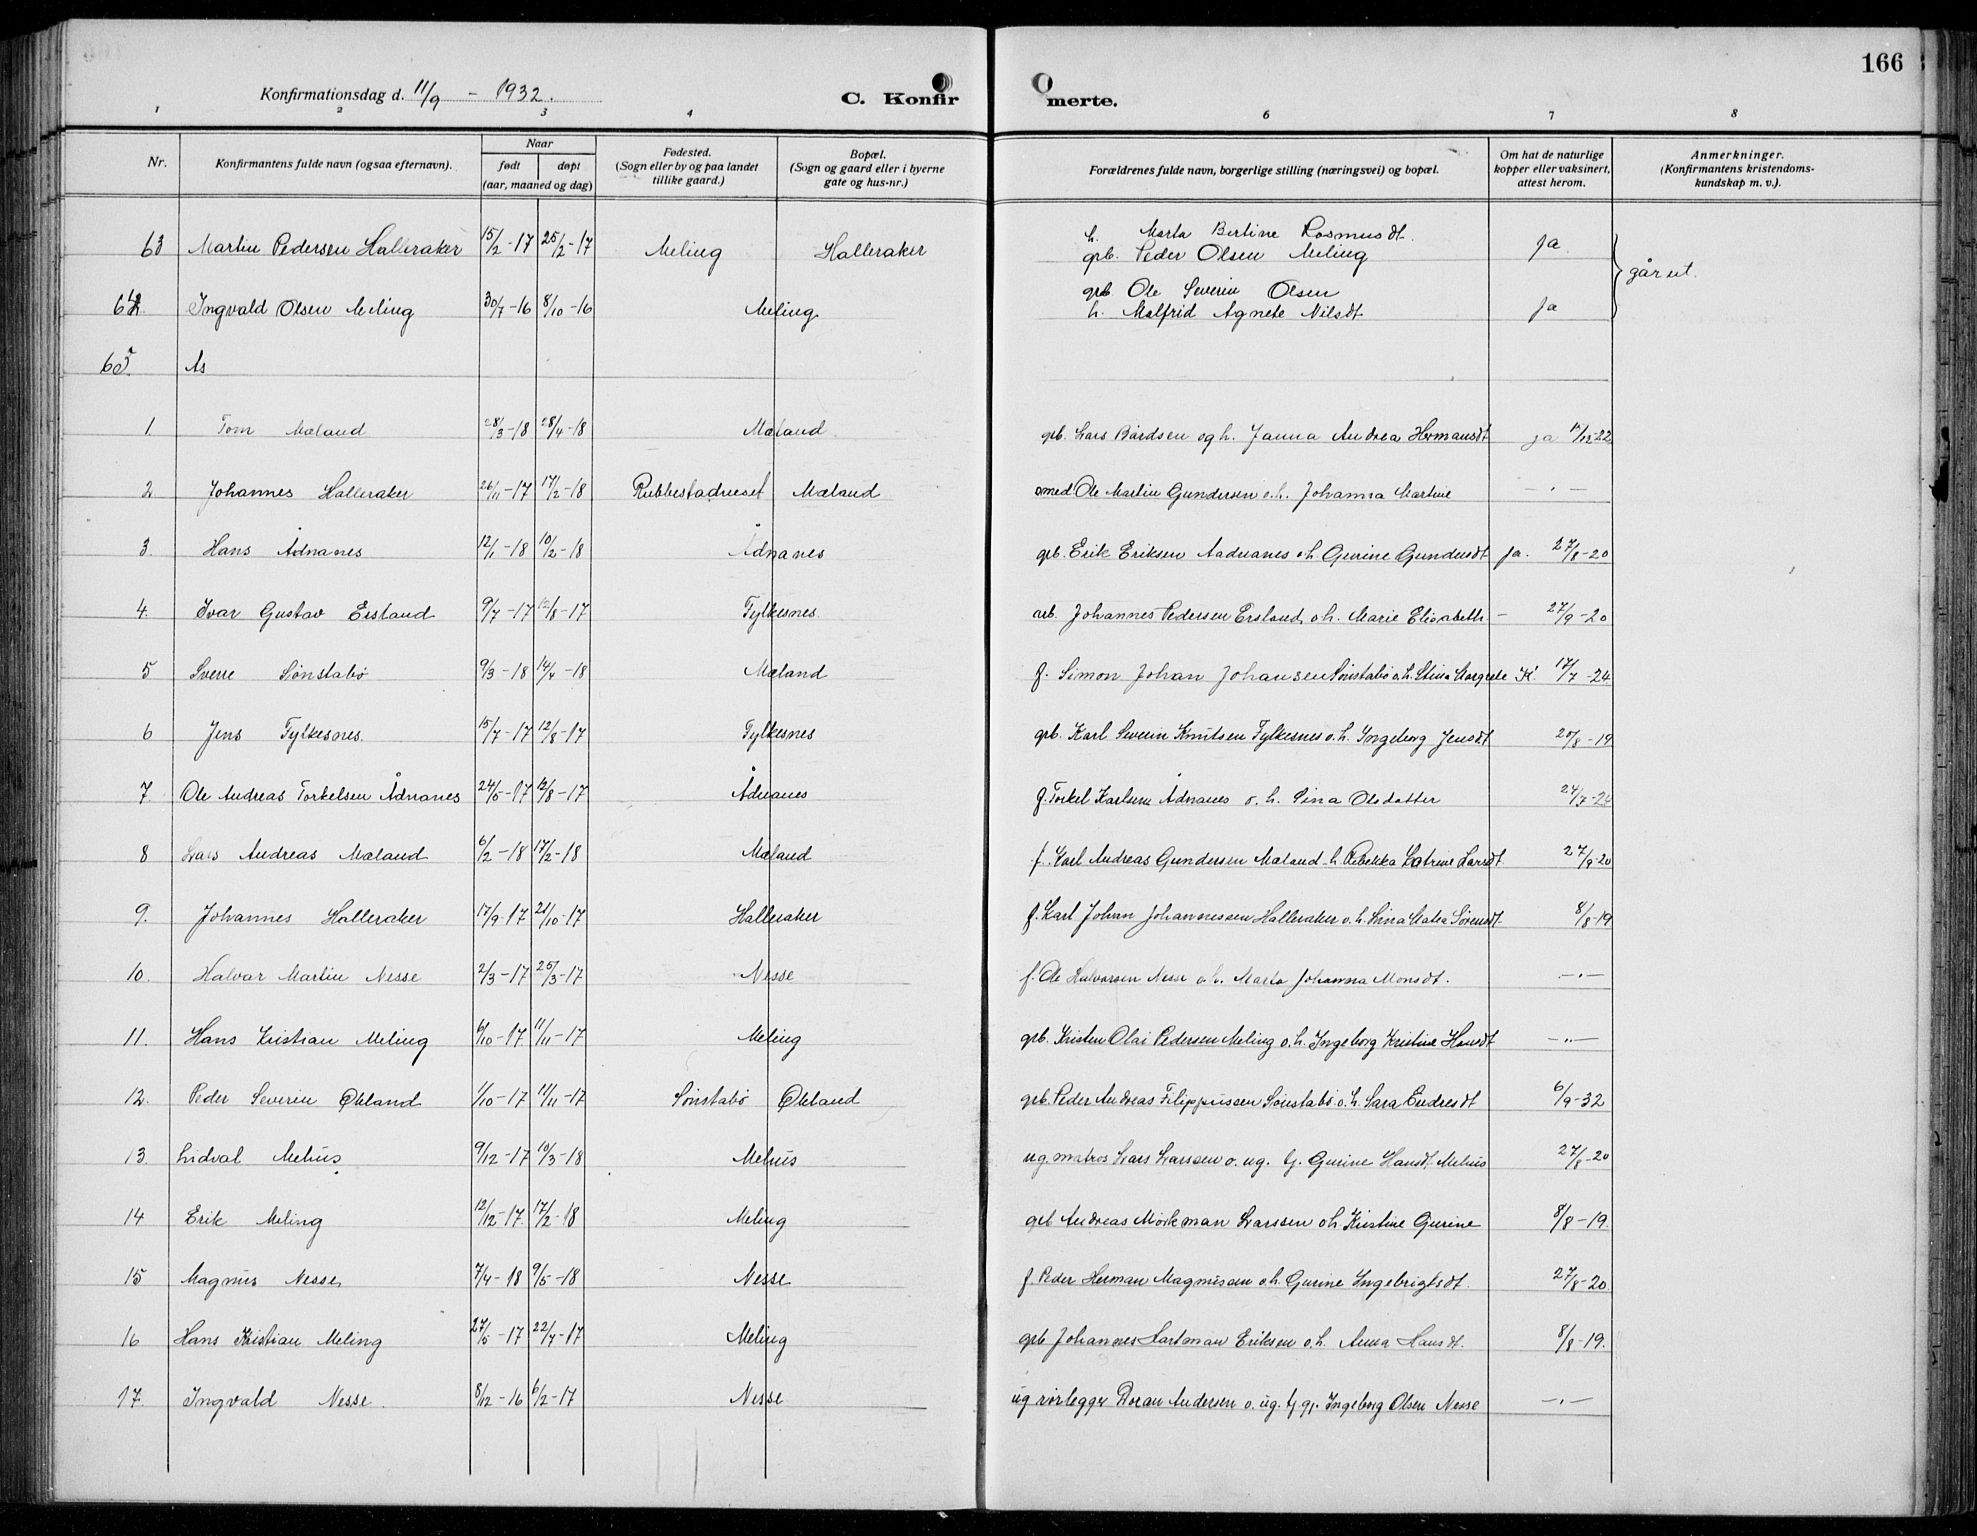 166
Konfirmationsdag d. 11/9 - 1932.
C. Konfirmerte.
1 2 3 4 6 7 8
Nr.
Konfirmantens fulde navn (ogsaa efternavn).
Naar
født døpt
(aar, maaned og dag)
Fødested.
(Sogn eller by og paa landet
tillike gaard.)
Bopæl.
(Sogn og gaard eller i byerne
gate og hus-nr.)
Forældrenes fulde navn, borgerlige stilling (næringsvei) og bopæl.
Om hat de naturlige
kopper eller vaksinert,
attest herom.
Anmerkninger.
(Konfirmantens kristendoms-
kundskap m. v.).
63 Martin Pedersen Halleraker 15/2-17 25/2-17 Meling Halleraker h. Marta Bertine Rasmusdt.
grb. Peder Olsen Meling ja
går ut.
64 Ingvald Olsen Meling 30/7-16 8/10-16 Meling grb Ole Severin Olsen
h. Malfrid Agnete Nilsdt ja
65. As
1. Tom Mæland 28/3-18 28/4-18 Mæland. grb. Lars Bårdsen og h. Janna Andrea Hermansdt ja 11/12-22
2. Johannes Halleraker 26/11-17 17/2-18 Rubbestadneset Mæland smed Ole Martin Gundersen o.h. Johanna Martine - " -
3. Hans Ådnanes 12/1-18 10/2-18 Ådnanes grb. Erik Eriksen Aadnanes o h. Gurine Gundersdt ja. 27/8-20
4. Ivar Gustav Ersland 9/7-17 12/8-17 Fylkesnes. arb. Johannes Pedersen Ersland, o h. Marie Elisabeth - 27/9-20
5 Sverre Sønstabø 9/3-18 14/4-18 Mæland f. Simon Johan Johansen Sønstabø o.h. Stina Margrete K. 17/7-24
6 Jens Fylkesnes. 15/7-17 12/8-17 Fylkesnes grb. Karl Severin Knutsen Fylkesnes o.h. Ingeborg Jensdt. 20/8-19
7. Ole Andreas Torkelsen Ådnanes 24/5-17 12/8-17 Ådnanes f. Torkel Karlsen Ådnanes o. h. Sina Olsdatter 24/7-24
8 Lars Andreas Mæland 6/2-18 17/2-18 Mæland f. Karl Andreas Gundersen Mæland - h Rebekka Katrine Larsdt. 27/9-20
9. Johannes Halleraker 17/9-17 21/10-17 Halleraker f. Karl Johan Johannessen Halleraker o.h. Sina Matea Sørensdt. 8/8-19
10. Halvar Martin Nesse 2/3-17 25/3-17 Nesse f. Ole Halvorsen Nesse o h. Marta Johanna Monsdt. - " -
11. Hans Kristian Meling 6/10-17 11/11-17 Meling grb. Kristen Olai Pedersen Meling o.h. Ingeborg Kristine Hansdt - " -
12. Peder Severin Økland 1/10-17 11/11-17 Sønstabø Økland grb. Peder Andreas Filippussen Sønstabø o.h. Sara Endresdt 6/9-32
13. Lidval Mehus 9/12-17 10/3-18 Mehus ug. matros Lars Larssen o. ug. tj. Gurine Hansdt. Mehus 27/8-20
14 Erik Meling 12/12-17. 17/2-18 Meling grb Andreas Mørkman Larssen o h. Kristine Gurine 8/8-19.
15 Magnus Nesse 7/4-18 9/5-18 Nesse f. Peder Herman Magnusen o.h. Gurine Ingebrigtsdt. 27/8-20.
16 Hans Kristian Meling 27/5-17 22/7-17 Meling grb Johannes Hartman Eriksen o.h. Anna Hansdt. 8/8-19.
17. Ingvald Nesse. 8/12-16 6/2-17 Nesse ug rørlegger Andersen o. ug. tj. gj. Ingeborg Olsen Nesse - " -